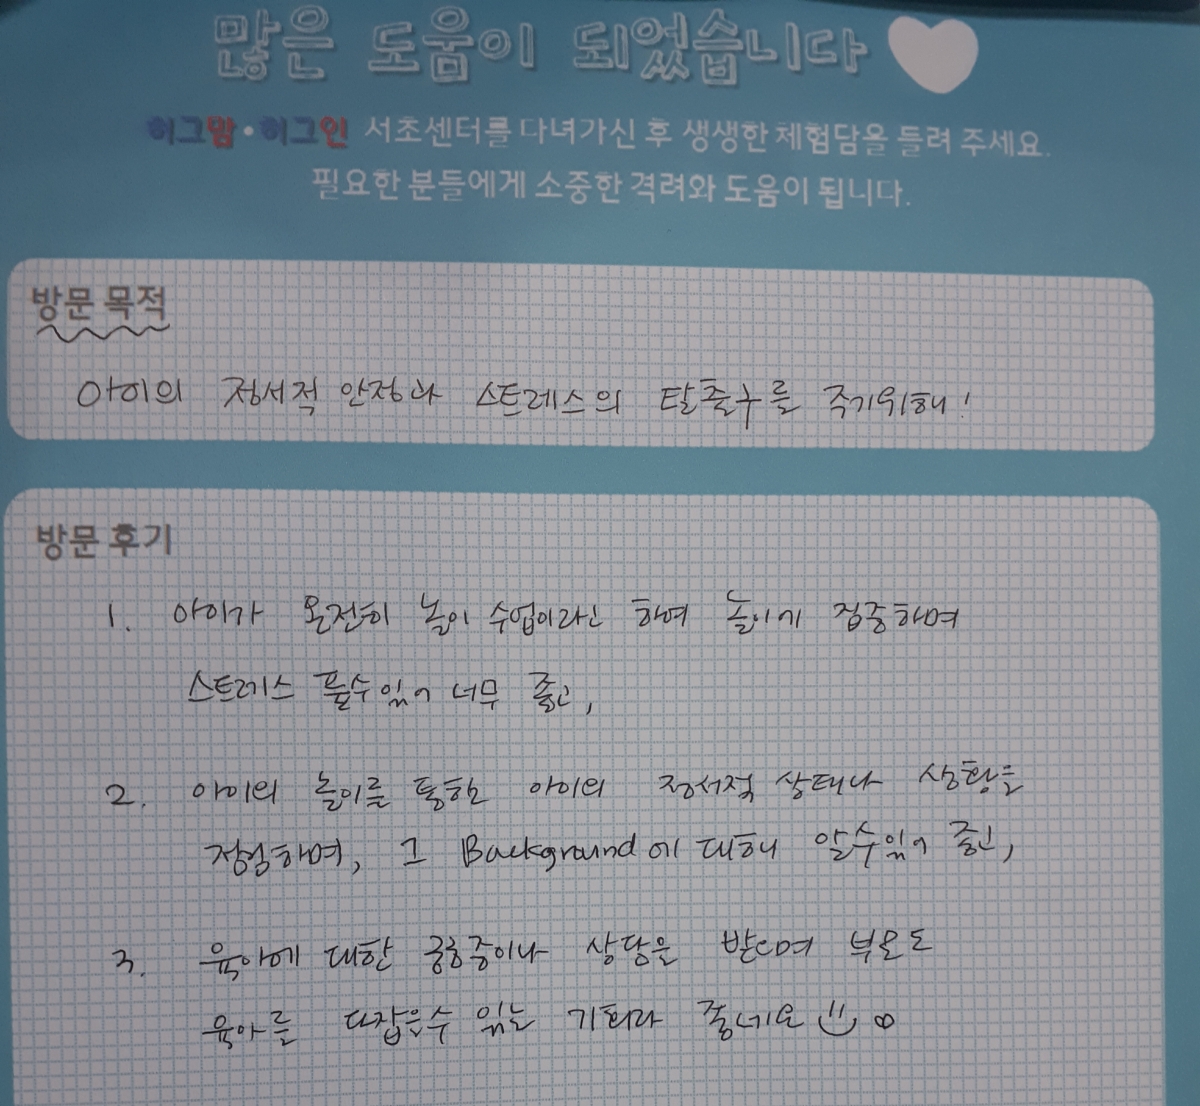 많은 도움이 되었습니다
허그맘·허그인 서초센터를 다녀가신 후 생생한 체험담을 들려 주세요.
필요한 분들에게 소중한 격려와 도움이 됩니다.
방문 목적
아이의 정서적 안정과 스트레스의 탈출구를 주기위해!
방문 후기
1. 아이가 온전히 놀이 수업이라 하여 놀이에 집중하며
스트레스 풀수있어 너무 좋고,
2. 아이의 놀이를 통한 아이의 정서적 상태나 상황을
점검하며, 그 Background에 대해 알수있어 좋고,
3. 육아에 대한 궁금증이나 상담을 받으며 부모도
육아를 다잡을수 있는 기회라 좋네요